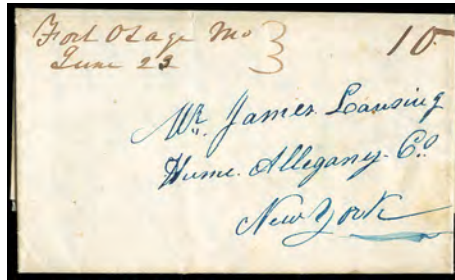 Fort Osage Mo
June 23
3
10
Mr. James Lansing
Hume. Allegany. Co.
New York